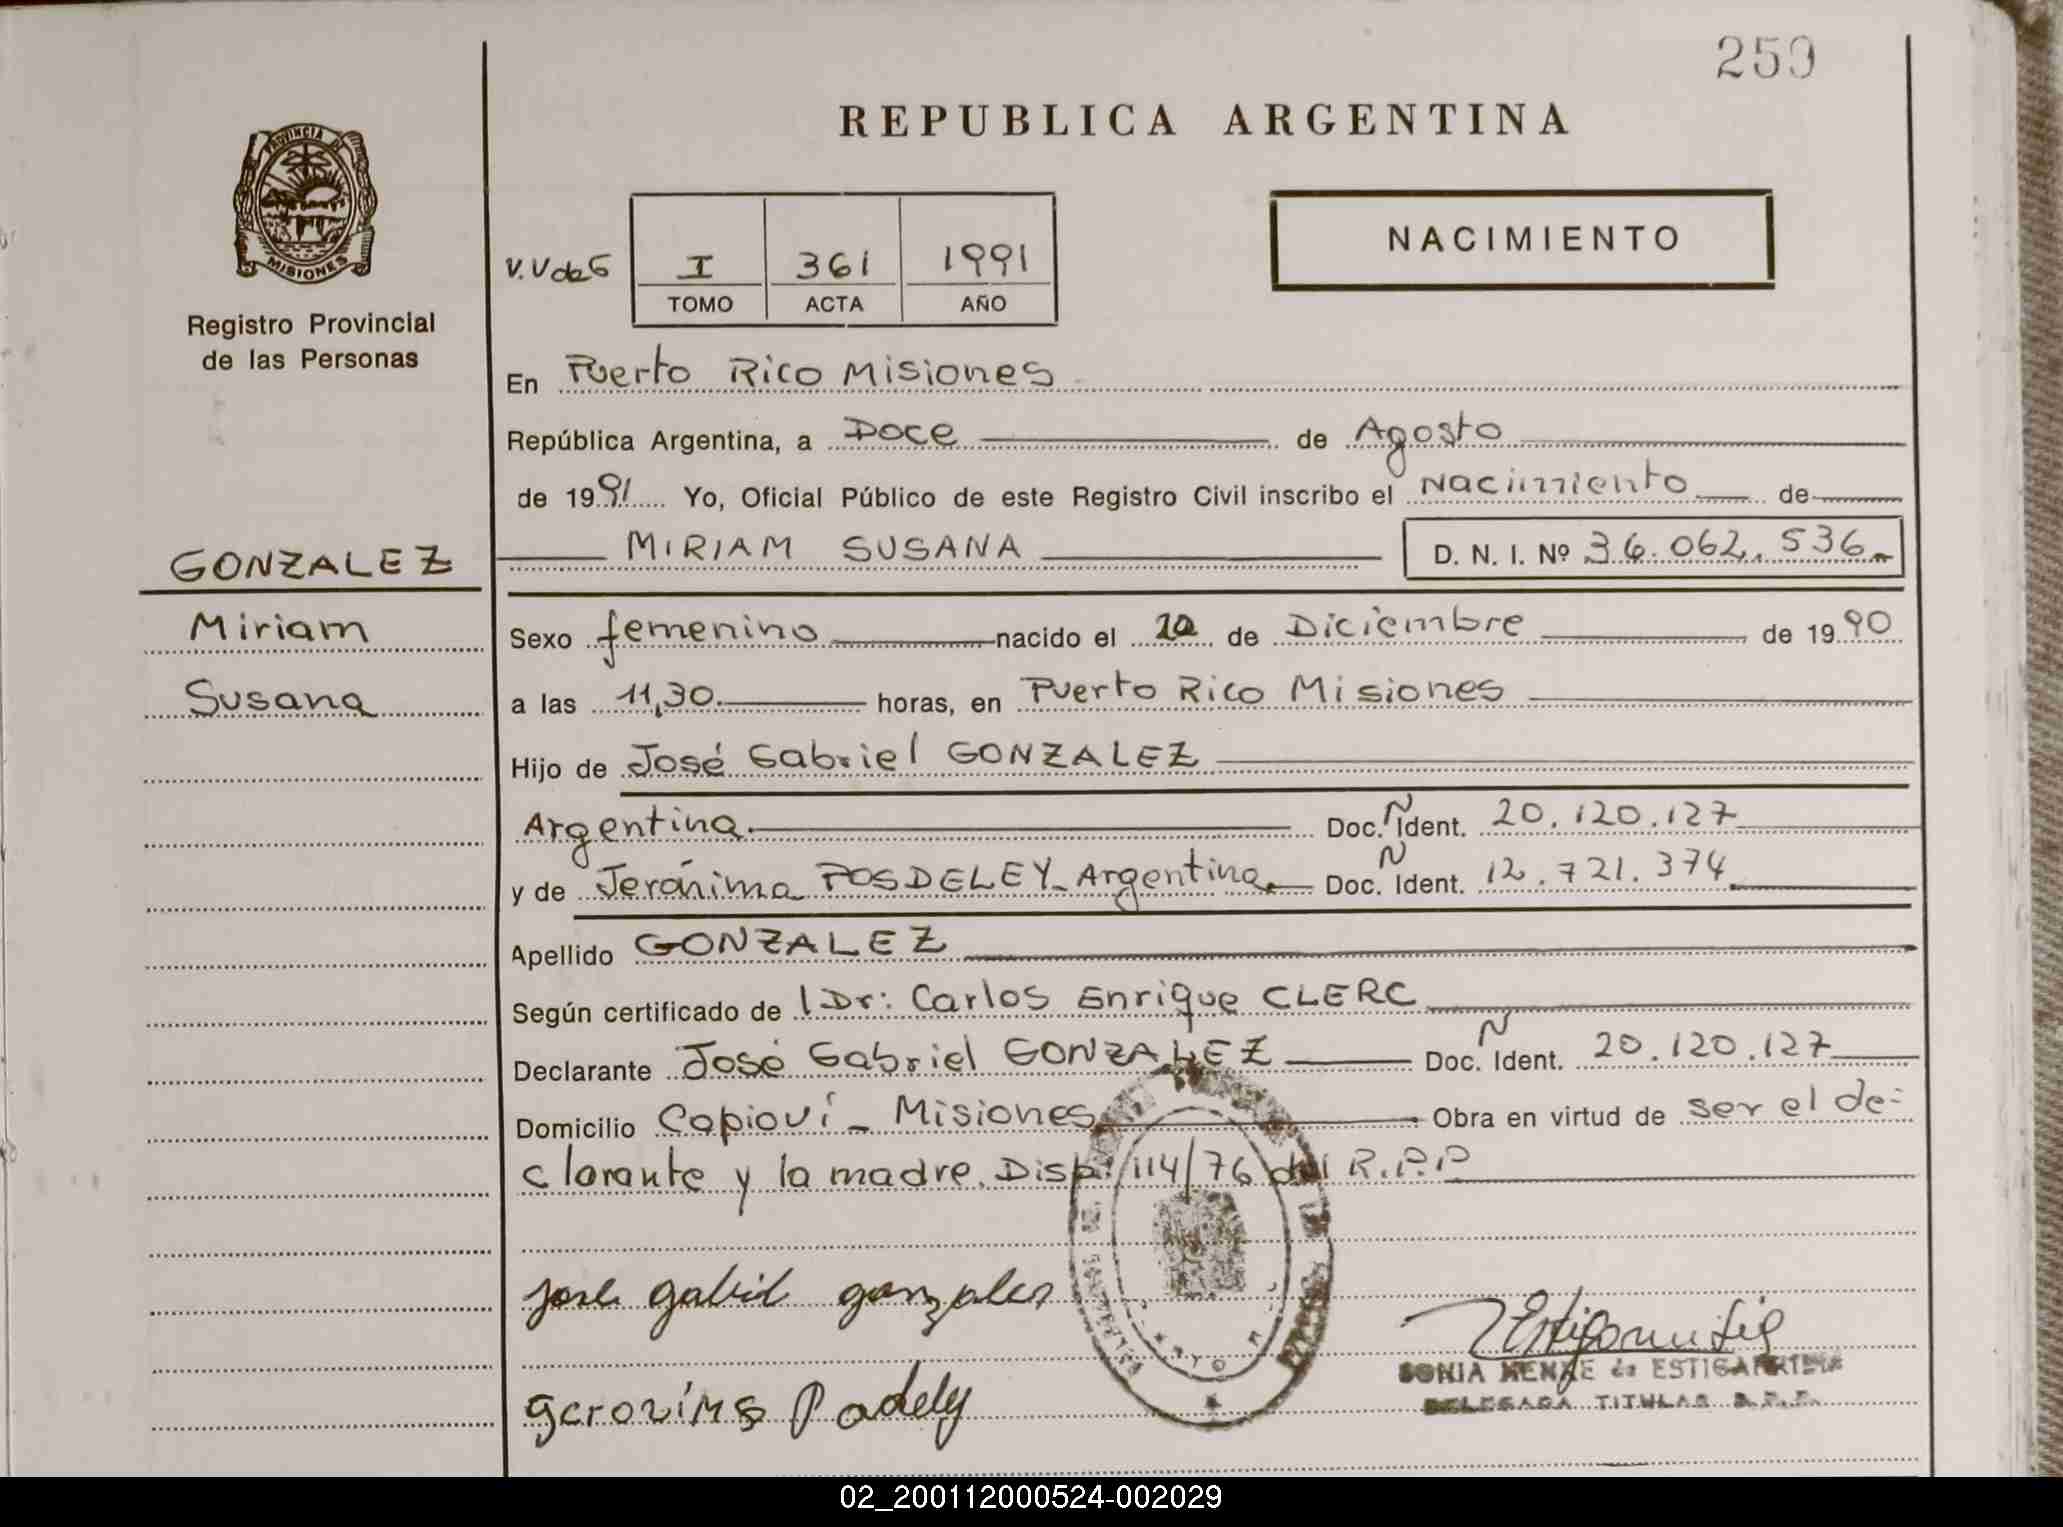 259
REPUBLICA ARGENTINA
PROVINCIA DE
MISIONES
Registro Provincial
de las Personas
V.V de G
I 361 1991
TOMO ACTA AÑO
NACIMIENTO
En Puerto Rico Misiones
República Argentina, a Doce de Agosto
de 1991 Yo, Oficial Público de este Registro Civil inscribo el Nacimiento de
MIRIAM SUSANA D. N. I. Nº 36.062.536
GONZALEZ
Miriam
Susana
Sexo femenino nacido el de Diciembre de 1990
a las 11,30 horas, en Puerto Rico Misiones
Hijo de José Gabriel GONZALEZ
Argentina Doc. N Ident. 20.120.127
y de Jerónima POSDELEY - Argentina Doc. N Ident. 12.721.374
Apellido GONZALEZ
Según certificado de l Dr: Carlos Enrique CLERC
Declarante José Gabriel GONZALEZ Doc. N Ident. 20.120.127
Domicilio Capioví - Misiones Obra en virtud de ser el de-
clarante y la madre. Disp. 114/76 del R.P.P
jose gabril gonzales
SONIA MENKE de ESTIGARRIBIA
DELEGADA TITULAR R.P.P.
02_200112000524-002029